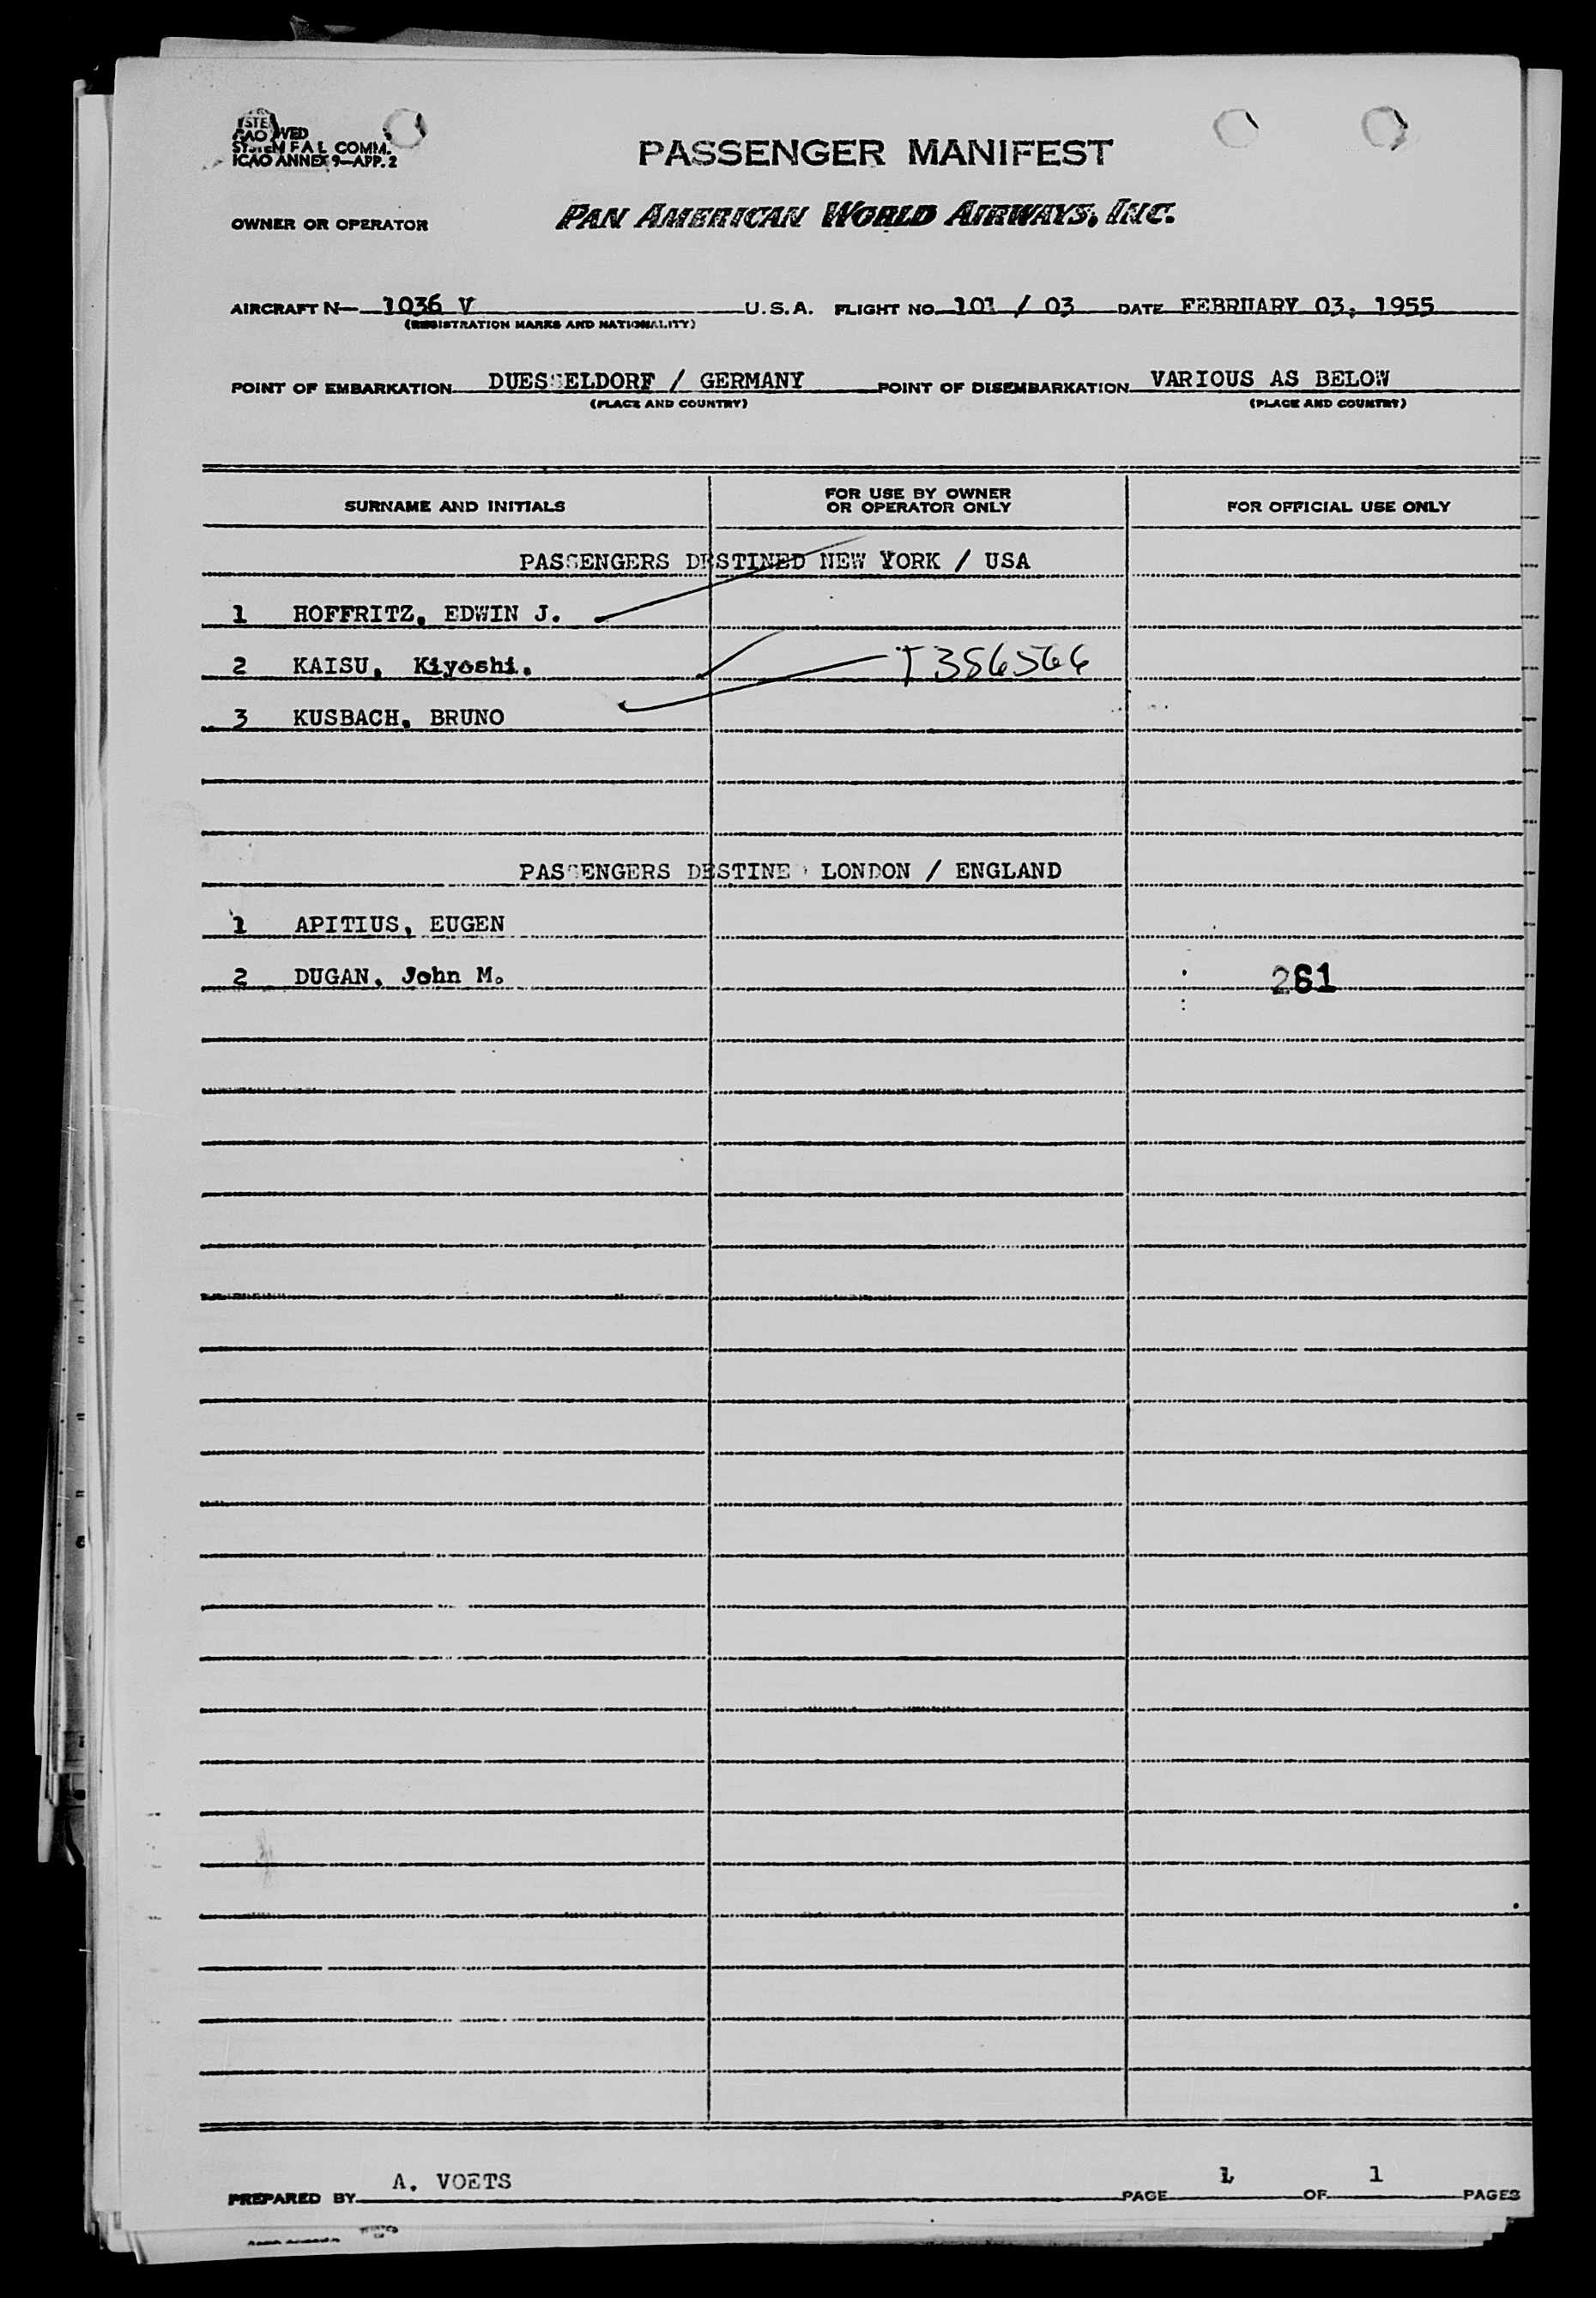 VED
SYSTEM F A L COMM.
ICAO ANNEX 9—APP. 2
PASSENGER MANIFEST
OWNER OR OPERATOR PAN AMERICAN WORLD AIRWAYS, INC.
AIRCRAFT N— 1036 V U.S.A. FLIGHT NO. 101 / 03 DATE FEBRUARY 03, 1955
(REGISTRATION MARKS AND NATIONALITY)
POINT OF EMBARKATION DUESSELDORF / GERMANY POINT OF DISEMBARKATION VARIOUS AS BELOW
(PLACE AND COUNTRY) (PLACE AND COUNTRY)
SURNAME AND INITIALS FOR USE BY OWNER OR OPERATOR ONLY FOR OFFICIAL USE ONLY
PASSENGERS DESTINED NEW YORK / USA
1 HOFFRITZ, EDWIN J.
2 KAISU, Kiyoshi. T 356566
3 KUSBACH, BRUNO
PASSENGERS DESTINE LONDON / ENGLAND
1 APITIUS, EUGEN
2 DUGAN, John M. 261
PREPARED BY A. VOETS PAGE 1 OF 1 PAGES